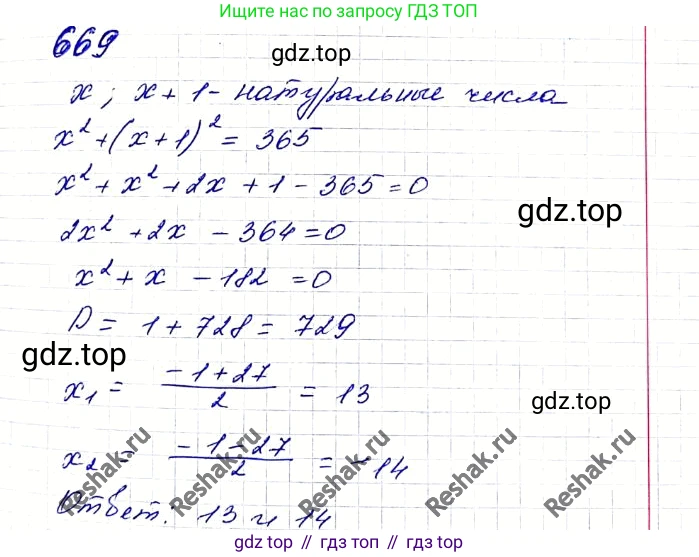 Ищите нас на сайте ГДЗ ТОП
669
gdz.top
x; x + 1 - натуральные числа
x² + (x + 1)² = 365
x² + x² + 2x + 1 - 365 = 0
gdz.top
2x² + 2x - 364 = 0
x² + x - 182 = 0
D = 1 + 728 = 729
gdz.top
x₁ = (-1 + 27)/2 = 13
gdz.top
x₂ = (-1 - 27)/2 = -14
Reshak.ru Reshak.ru Reshak.ru Reshak.ru
Ответ: 13 и 14
gdz.top // гдз.топ // gdz.top // гдз.топ